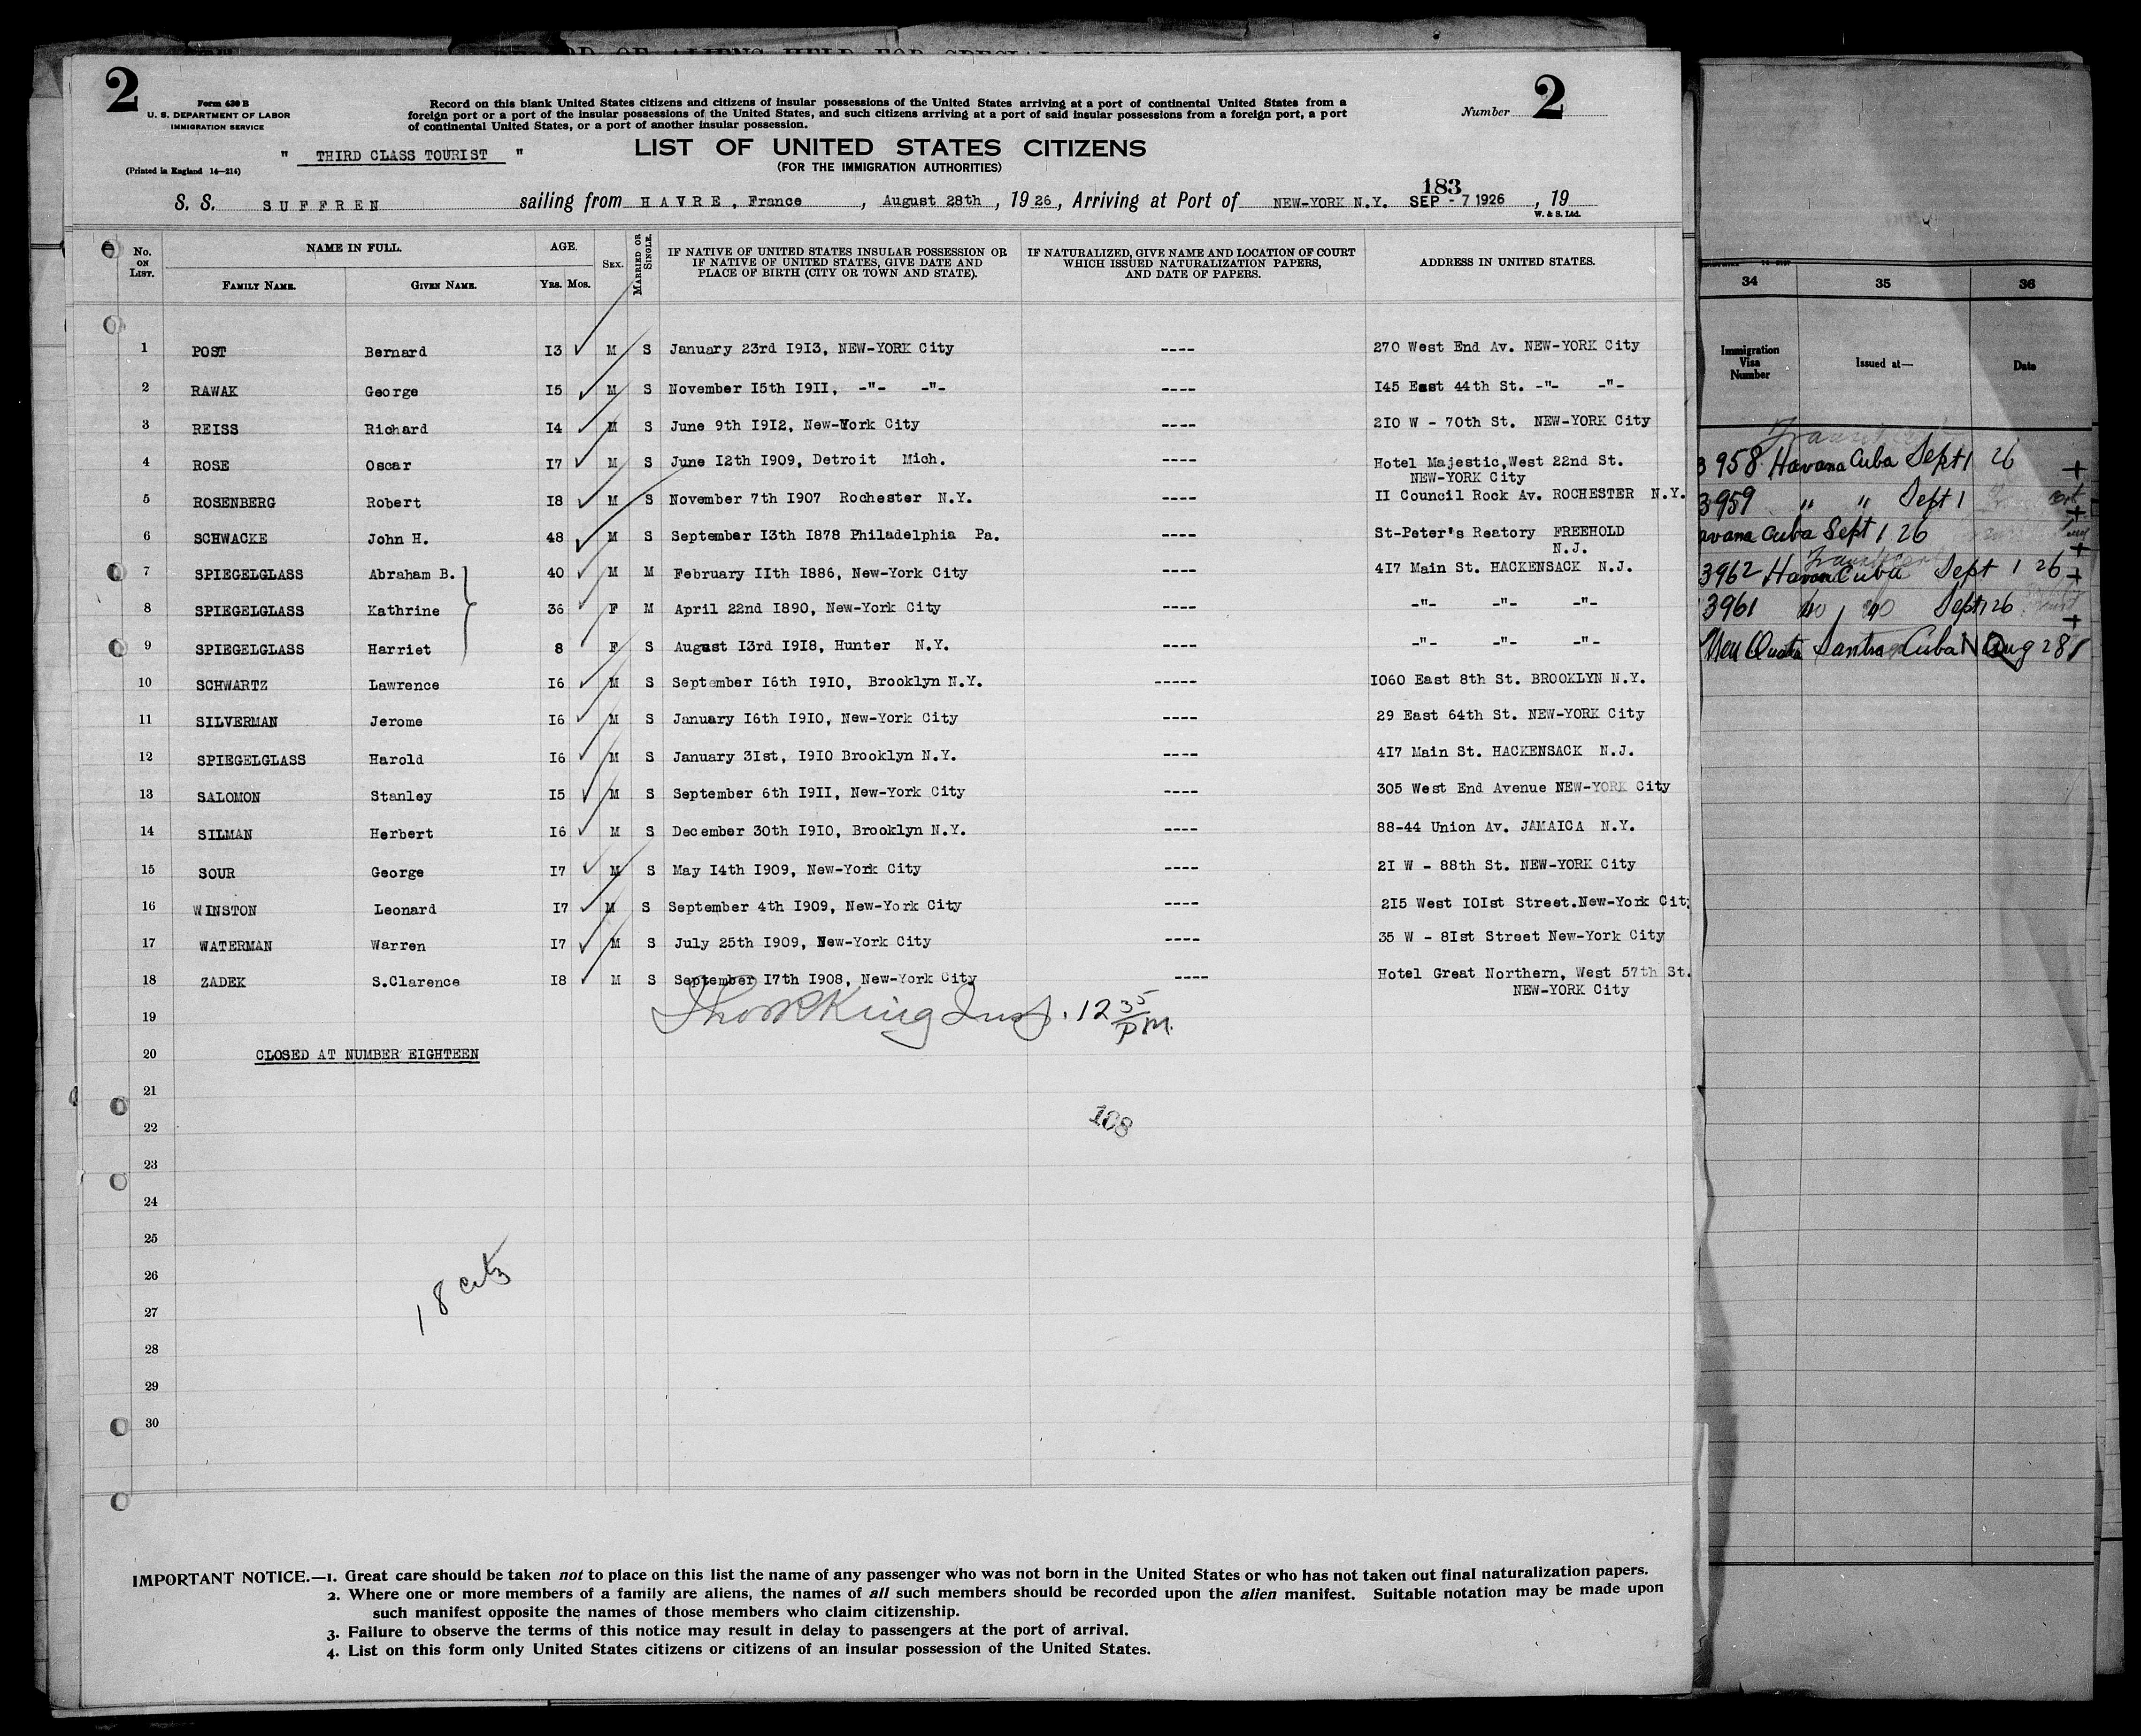 2
Form 630 B
U. S. DEPARTMENT OF LABOR
IMMIGRATION SERVICE
Record on this blank United States citizens and citizens of insular possessions of the United States arriving at a port of continental United States from a
foreign port or a port of the insular possessions of the United States, and such citizens arriving at a port of said insular possessions from a foreign port, a port
of continental United States, or a port of another insular possession.
Number 2
" THIRD CLASS TOURIST "
LIST OF UNITED STATES CITIZENS
(Printed in England 14—214)
(FOR THE IMMIGRATION AUTHORITIES)
183
S. S. SUFFREN sailing from HAVRE, France, August 28th, 1926, Arriving at Port of NEW-YORK N.Y. SEP - 7 1926, 19
W. & S. Ltd.
No. ON LIST. NAME IN FULL. FAMILY NAME. GIVEN NAME. AGE. YRS. MOS. SEX. MARRIED OR SINGLE. IF NATIVE OF UNITED STATES INSULAR POSSESSION OR IF NATIVE OF UNITED STATES, GIVE DATE AND PLACE OF BIRTH (CITY OR TOWN AND STATE). IF NATURALIZED, GIVE NAME AND LOCATION OF COURT WHICH ISSUED NATURALIZATION PAPERS, AND DATE OF PAPERS. ADDRESS IN UNITED STATES.
1 POST Bernard I3 M S January 23rd I9I3, NEW-YORK City ---- 270 West End Av. NEW-YORK City
2 RAWAK George I5 M S November I5th I9II, -"- -"- ---- I45 East 44th St. -"- -"-
3 REISS Richard I4 M S June 9th I9I2, New-York City ---- 2I0 W - 70th St. NEW-YORK City
4 ROSE Oscar I7 M S June I2th I909, Detroit Mich. ---- Hotel Majestic,West 22nd St.
NEW-YORK City
5 ROSENBERG Robert I8 M S November 7th I907 Rochester N.Y. ---- II Council Rock Av. ROCHESTER N.Y.
6 SCHWACKE John H. 48 M S September I3th I878 Philadelphia Pa. ---- St-Peter's Reatory FREEHOLD
N.J.
7 SPIEGELGLASS Abraham B. 40 M M February IIth I886, New-York City ---- 4I7 Main St. HACKENSACK N.J.
8 SPIEGELGLASS Kathrine 36 F M April 22nd I890, New-York City ---- -"- -"- -"-
9 SPIEGELGLASS Harriet 8 F S August I3rd I9I8, Hunter N.Y. ---- -"- -"- -"-
10 SCHWARTZ Lawrence I6 M S September I6th I9I0, Brooklyn N.Y. ----- I060 East 8th St. BROOKLYN N.Y.
11 SILVERMAN Jerome I6 M S January I6th I9I0, New-York City ---- 29 East 64th St. NEW-YORK City
12 SPIEGELGLASS Harold I6 M S January 3Ist, I9I0 Brooklyn N.Y. ---- 4I7 Main St. HACKENSACK N.J.
13 SALOMON Stanley I5 M S September 6th I9II, New-York City ---- 305 West End Avenue NEW-YORK City
14 SILMAN Herbert I6 M S December 30th I9I0, Brooklyn N.Y. ---- 88-44 Union Av. JAMAICA N.Y.
15 SOUR George I7 M S May I4th I909, New-York City ---- 2I W - 88th St. NEW-YORK City
16 WINSTON Leonard I7 M S September 4th I909, New-York City ---- 2I5 West I0Ist Street.New-York City
17 WATERMAN Warren I7 M S July 25th I909, New-York City ---- 35 W - 8Ist Street New-York City
18 ZADEK S.Clarence I8 M S September I7th I908, New-York City ---- Hotel Great Northern, West 57th St.
NEW-YORK City
19 King Insp. 12 35/pm.
20 CLOSED AT NUMBER EIGHTEEN
21
22 108
23
24
25
26 18 cits
27
28
29
30
IMPORTANT NOTICE.—1. Great care should be taken not to place on this list the name of any passenger who was not born in the United States or who has not taken out final naturalization papers.
2. Where one or more members of a family are aliens, the names of all such members should be recorded upon the alien manifest. Suitable notation may be made upon
such manifest opposite the names of those members who claim citizenship.
3. Failure to observe the terms of this notice may result in delay to passengers at the port of arrival.
4. List on this form only United States citizens or citizens of an insular possession of the United States.
34 35 36
Immigration Visa Number Issued at— Date
3958 Havana Cuba Sept 1 26
3959 " " Sept 1
avana Cuba Sept 1 26
3962 Havana Cuba Sept 1 26
3961 do do Sept 1 26
Non Quota Cuba Aug 28